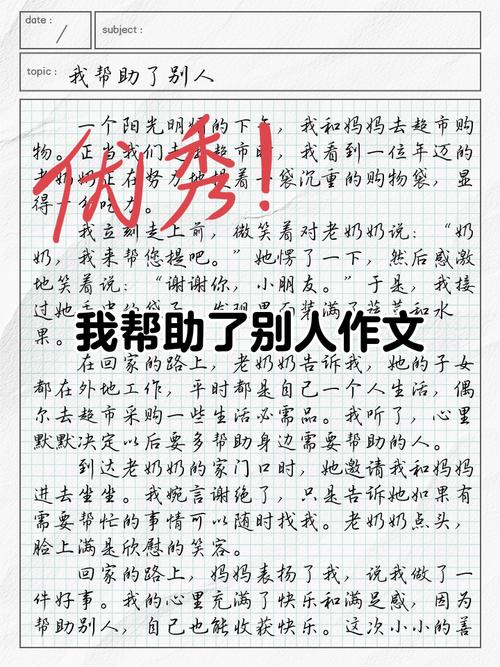 date:
subject:
topic: 我帮助了别人
一个阳光明媚的下午，我和妈妈去超市购
物。正当我们走去超市时，我看到一位年迈的
老奶奶正在努力地提着一袋沉重的购物袋，显
得十分吃力。
优秀！
我立刻走上前，微笑着对老奶奶说：“奶
奶，我来帮您提吧。”她愣了一下，然后感激
地笑着说：“谢谢你，小朋友。”于是，我接
过她手中的袋子，发现里面装满了蔬菜和水
果。
我帮助了别人作文
在回家的路上，老奶奶告诉我，她的子女
都在外地工作，平时都是自己一个人生活，偶
尔去超市采购一些生活必需品。我听了，心里
默默决定以后要多帮助身边需要帮助的人。
到达老奶奶的家门口时，她邀请我和妈妈
进去坐坐。我婉言谢绝了，只是告诉她如果有
需要帮忙的事情可以随时找我。老奶奶点头，
脸上满是欣慰的笑容。
回家的路上，妈妈表扬了我，说我做了一
件好事。我的心里充满了快乐和满足感，因为
帮助别人，自己也能收获快乐。这次小小的善